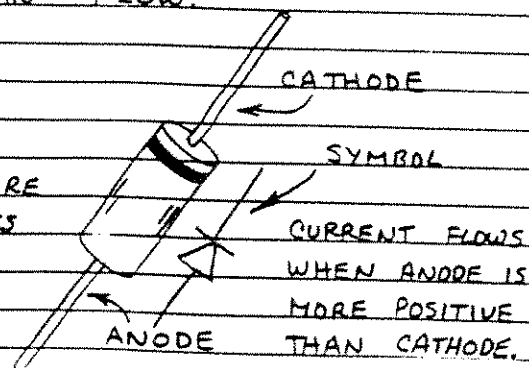 FLOW.
CATHODE
SYMBOL
RE
S
CURRENT FLOWS
WHEN ANODE IS
MORE POSITIVE
THAN CATHODE.
ANODE